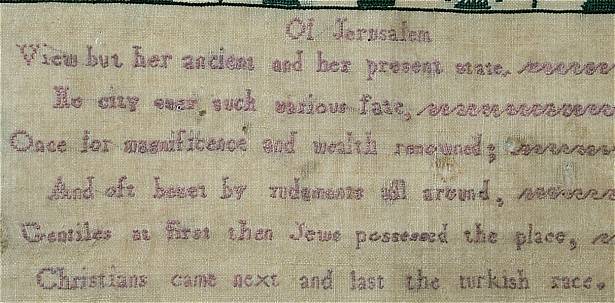 Of Jerusalem
View but her ancient and her present state.
No city ever such various fate,
Once for magnificence and wealth renowned;
And oft beset by rudgments all around,
Gentiles at first then Jews possessed the place,
Christians came next and last the turkish race.